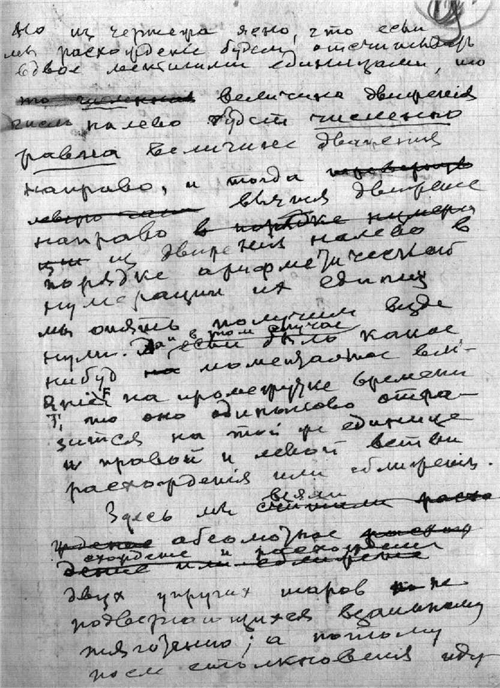 Но из чертежа ясно, что если
мы расхождение будем отсчитывать
вдвое меньшими единицами, то
то численная величина движения
налево будет численно
равна величине движения
направо, и тогда
вычтя движение
направо в порядке нумера
ции из движения налево в
порядке арифметической
нумерации их единиц
мы опять получим везде
нули. Да и в том случае
если было какое
нибудь на моментальное вли-
яние F на промежутке времени
T, то оно одинаково отра-
зится на той же единице
и правой и левой ветви
расхождения или сближения.
Здесь мы взяли
абсолютное
схождение и расхождение
двух упругих шаров не
подвергающихся взаимному
тяготению; а потому
после столкновения идут